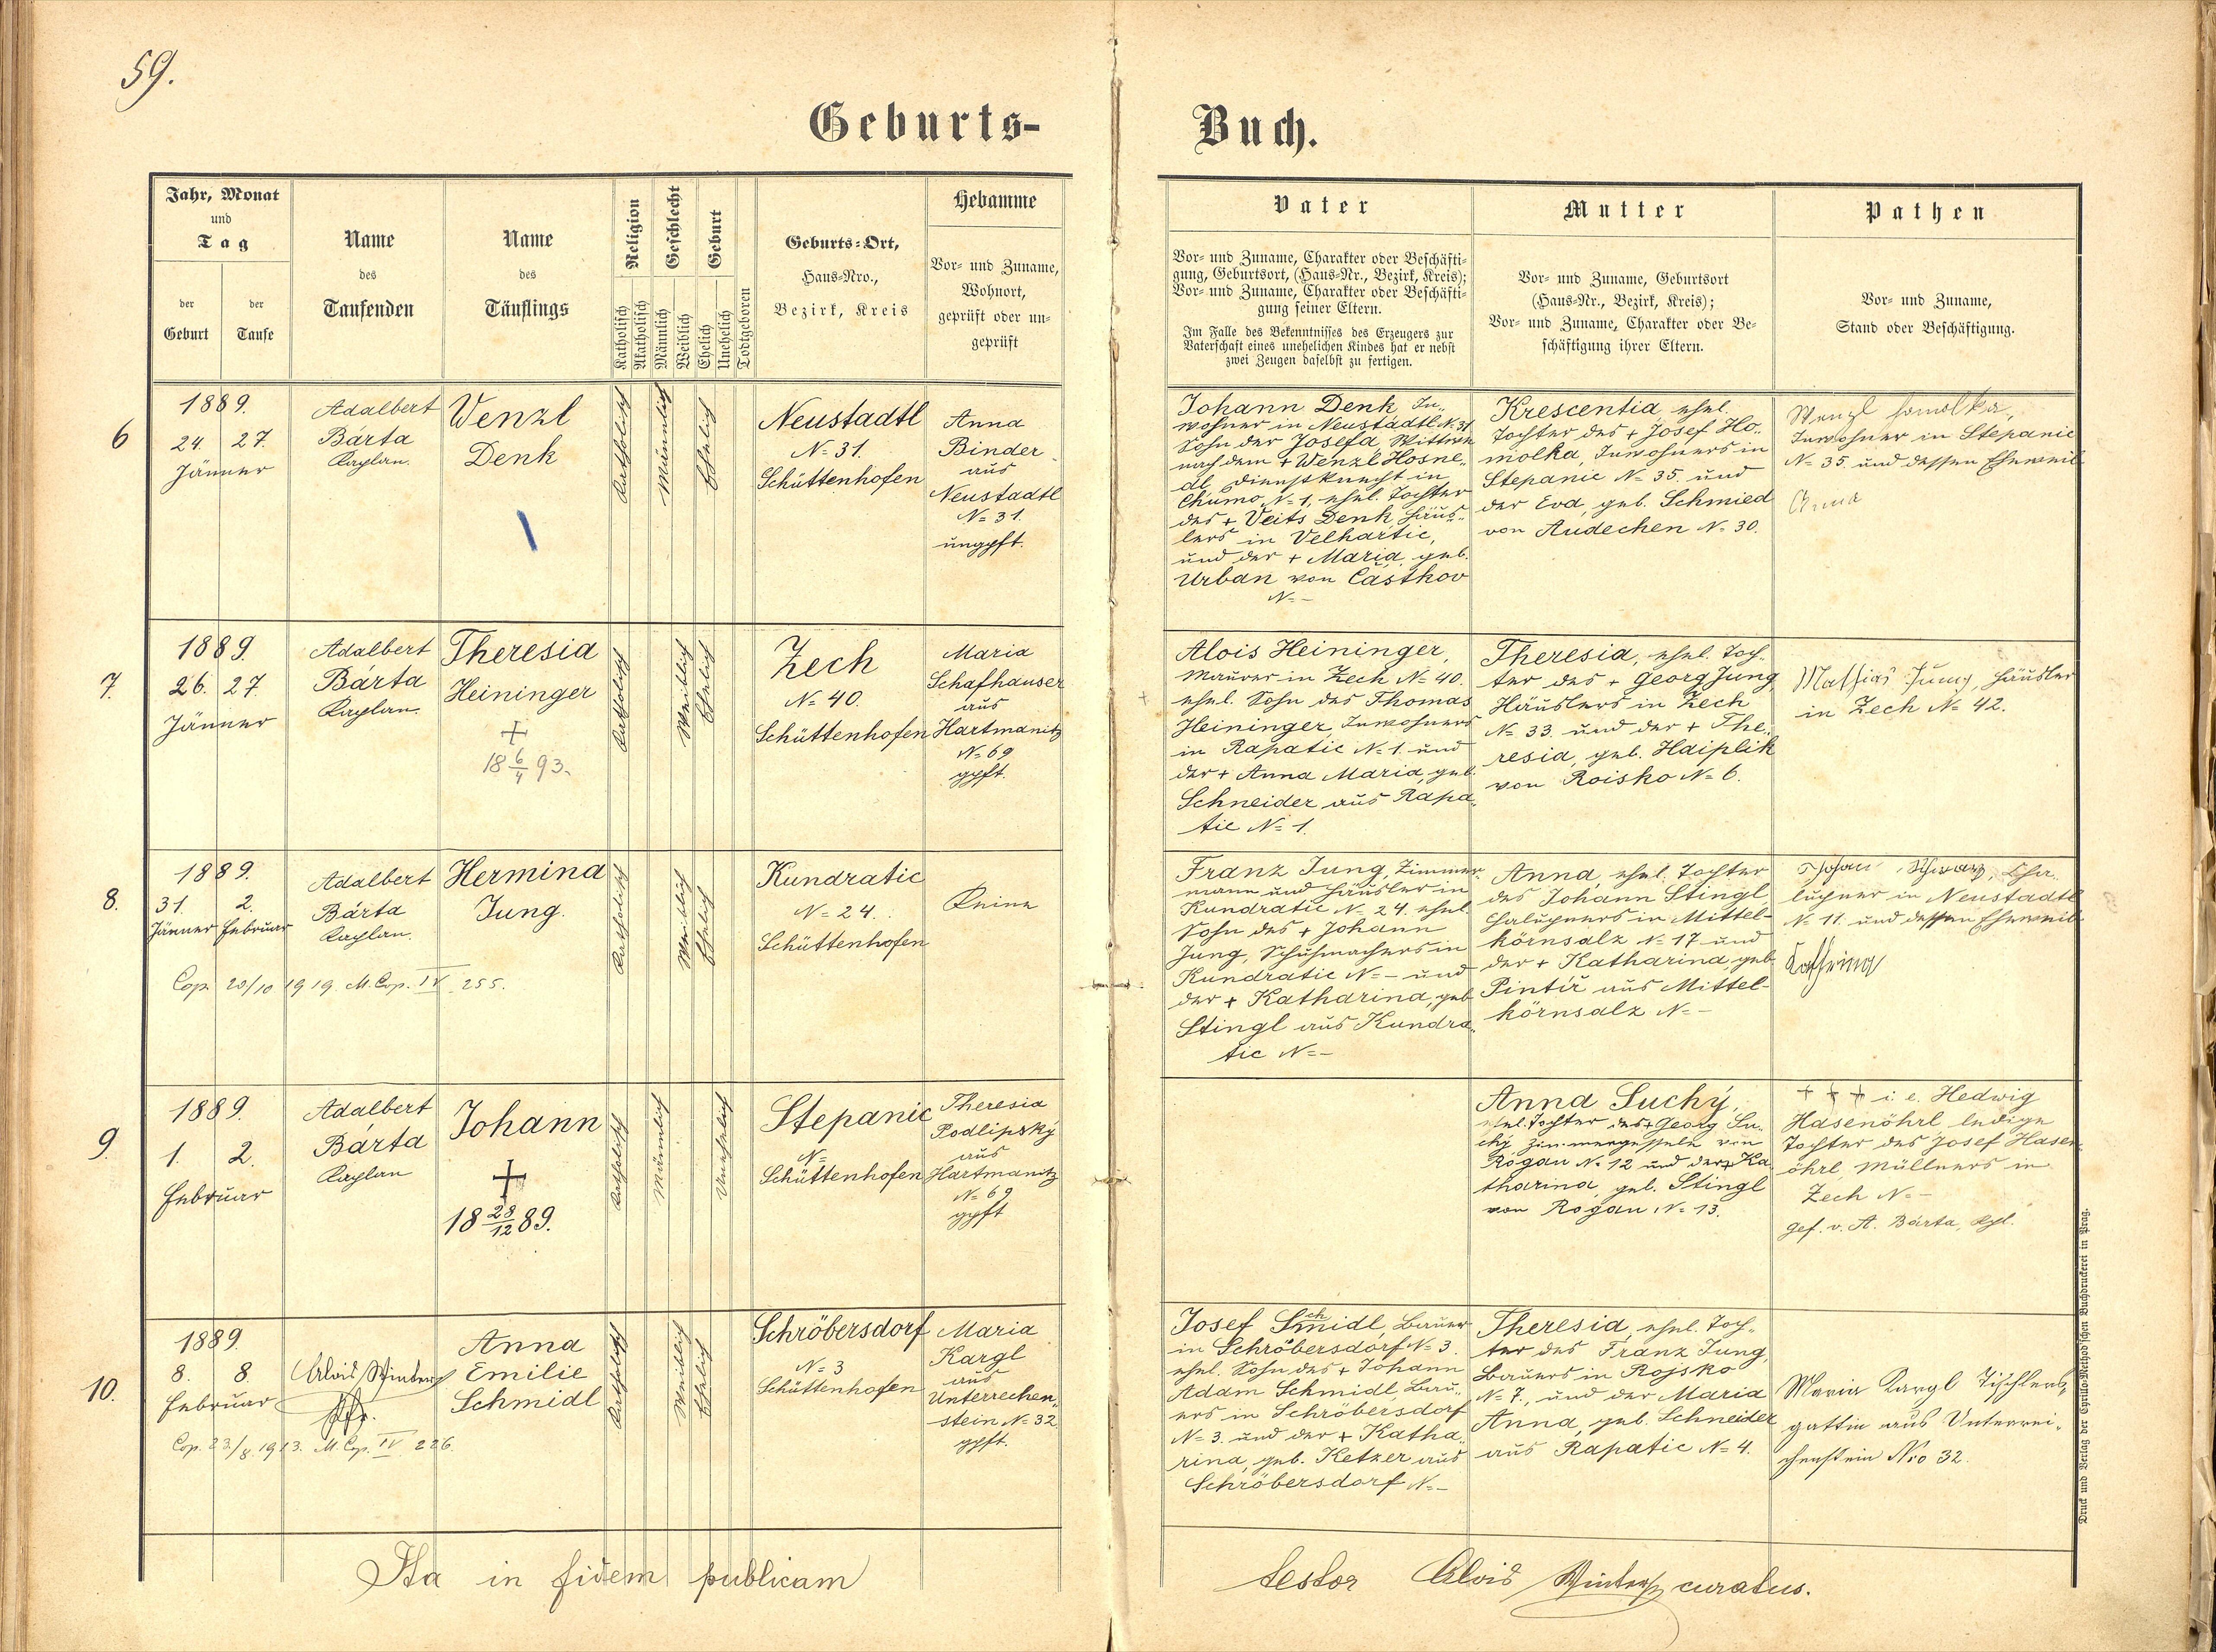 59.
Geburts-
Buch.
Jahr, Monat
und
Tag
der
Geburt
der
Taufe
Name
des
Taufenden
Name
des
Täuflings
Religion
Katholisch
Akatholisch
Geschlecht
Männlich
Weiblich
Geburt
Ehelich
Unehelich
Todtgeboren
Geburts-Ort,
Haus-Nro.,
Bezirk, Kreis
Hebamme
Vor- und Zuname,
Wohnort,
geprüft oder un-
geprüft
Vater
Vor- und Zuname, Charakter oder Beschäfti-
gung, Geburtsort, (Haus-Nr., Bezirk, Kreis);
Vor- und Zuname, Charakter oder Beschäfti-
gung seiner Eltern.
Im Falle des Bekenntnisses des Erzeugers zur
Vaterschaft eines unehelichen Kindes hat er nebst
zwei Zeugen daselbst zu fertigen.
Mutter
Vor- und Zuname, Geburtsort
(Haus-Nr., Bezirk, Kreis);
Vor- und Zuname, Charakter oder Be-
schäftigung ihrer Eltern.
Pathen
Vor- und Zuname,
Stand oder Beschäftigung.
6
1889.
24. 27.
Jänner
Adalbert
Bárta
Kaplan.
Wenzl
Denk
Katholisch
Männlich
Ehelich
Neustadtl
N= 31.
Schüttenhofen
Anna
Binder
aus
Neustadtl
N= 31.
ungpft.
Johann Denk, In-
wohner in Neustadtl N. 31
Sohn der Josefa Wittwe
nach dem + Wenzl Hosne-
dl Dienstknecht in
Chumo N= 1, ehel. Tochter
des + Veits Denk, Häus-
lers in Velhartic,
und der + Maria, geb.
Urban von Částkov
N= –
Krescentia, ehel.
Tochter des + Josef Ho-
molka, Inwohners in
Stepanic N= 35. und
der Eva, geb. Schmied
von Audechen N= 30.
Wenzl Homolka,
Inwohner in Stepanic
N= 35. und dessen Eheweib
Anna
7.
1889.
26. 27.
Jänner
Adalbert
Bárta
Kaplan.
Theresia
Heininger
+
18 6/4 93.
Katholisch
Weiblich
Ehelich
Zech
N= 40.
Schüttenhofen
Maria
Schafhauser
aus
Hartmanitz
N= 69
gpft.
Alois Heininger,
Maurer in Zech N= 40.
ehel. Sohn des Thomas
Heininger, Inwohners
in Rapatic N= 1. und
der + Anna Maria, geb.
Schneider aus Rapa-
tic N= 1.
Theresia, ehel. Toch-
ter des + Georg Jung,
Häuslers in Zech
N= 33. und der + The-
resia, geb. Haiplik
von Roisko N= 6.
Mathias Jung, Häusler
in Zech N= 42.
8.
1889.
31. 2.
Jänner Februar
Adalbert
Bárta
Kaplan.
Hermina
Jung.
Cop. 20/10 1919. M. Cop. IV 255.
Katholisch
Weiblich
Ehelich
Kundratic
N= 24.
Schüttenhofen
Keine
Franz Jung, Zimmer-
mann und Häusler in
Kundratic N= 24. ehel.
Sohn des + Johann
Jung, Schuhmachers in
Kundratic N= – und
der + Katharina, geb
Stingl aus Kundra-
tic N= –
Anna, ehel. Tochter
des Johann Stingl,
Chalupners in Mittel-
körnsalz N= 17 und
der + Katharina, geb
Pintíř aus Mittel-
körnsalz N= –
Johan Schwarz, Cha-
lupner in Neustadtl
N= 11. und dessen Eheweib
Katharina
9
1889.
1. 2.
Februar
Adalbert
Bárta
Kaplan
Johann
+
18 28/12 89.
Katholisch
Männlich
Unehelich
Stepanic
N=
Schüttenhofen
Theresia
Podlipský
aus
Hartmanitz
N= 69
gpft
Anna Suchý,
ehel. Tochter des + Georg Su-
chý Zimmergeselle von
Rogau N= 12 und der + Ka
tharina, geb. Stingl
von Rogau N= 13.
+ + + i. e. Hedwig
Hasenöhrl ledige
Tochter des Josef Hasen-
öhrl, Müllners in
Zech N= –
gef. v. A. Bárta, Kpl.
10.
1889.
8. 8.
Februar
Alois Winter
Pfr.
Anna
Emilie
Schmidl
Cop. 23./8. 1913. M. Cop. IV 226.
Katholisch
Weiblich
Ehelich
Schröbersdorf
N= 3
Schüttenhofen
Maria
Kargl
aus
Unterrechen-
stein N= 32.
gpft.
Josef Schmidl, Bauer
in Schröbersdorf N= 3.
ehel. Sohn des + Johann
Adam Schmidl, Bau-
ers in Schröbersdorf
N= 3. und der + Katha-
rina, geb. Ketzer aus
Schröbersdorf N= –
Theresia, ehel. Toch-
ter des Franz Jung,
Bauers in Rojsko
N= 7., und der Maria
Anna, geb. Schneider
aus Rapatic N= 4.
Maria Kargl Tischlers-
gattin aus Unterrei-
chenstein Nro 32.
Ita in fidem publicam
testor Alois Winter curatus.
Druck und Verlag der Cyrillo-Method'schen Buchdruckerei in Prag.